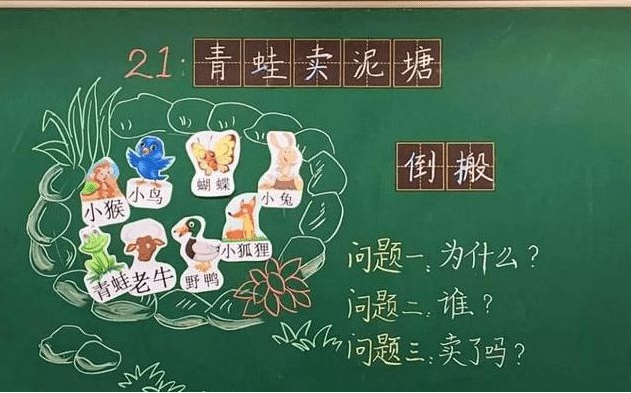 21:青蛙卖泥塘
倒搬
小猴
小鸟
蝴蝶
小兔
青蛙
老牛
野鸭
小狐狸
问题一:为什么?
问题二:谁?
问题三:卖了吗?